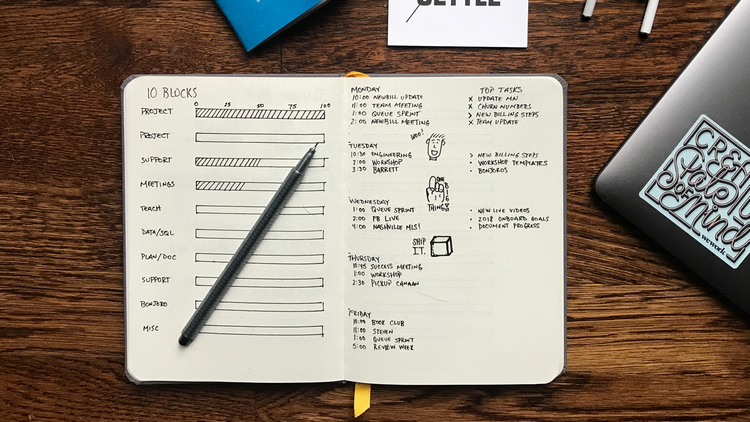 SETTLE
10 BLOCKS
0 25 50 75 100
PROJECT
PROJECT
SUPPORT
MEETINGS
TEACH
DATA/SQL
PLAN/DOC
SUPPORT
BONJORO
MISC
MONDAY
10:00 NEWBILL UPDATE
11:00 TEAM MEETING
1:00 QUEUE SPRINT
2:00 NEWBILL MEETING
TOP TASKS
X UPDATE MN
X CHURN NUMBERS
> NEW BILLING STEPS
X TEAM UPDATE
WOO!
TUESDAY
10:30 ENGINEERING
2:00 WORKSHOP
3:30 BARRETT
> NEW BILLING STEPS
• WORKSHOP TEMPLATES
• BONJOROS
THINGS
WEDNESDAY
1:00 QUEUE SPRINT
2:00 PB LIVE
4:00 NASHVILLE MLS!
• NEW LIVE VIDEOS
• 2018 ONBOARD GOALS
• DOCUMENT PROGRESS
SHIP
IT.
THURSDAY
10:45 SUCCESS MEETING
1:00 WORKSHOP
2:30 PICKUP CANAAN
FRIDAY
10:00 BOOK CLUB
11:00 STEVEN
1:00 QUEUE SPRINT
5:00 REVIEW WEEK
State
of
Mind
wework